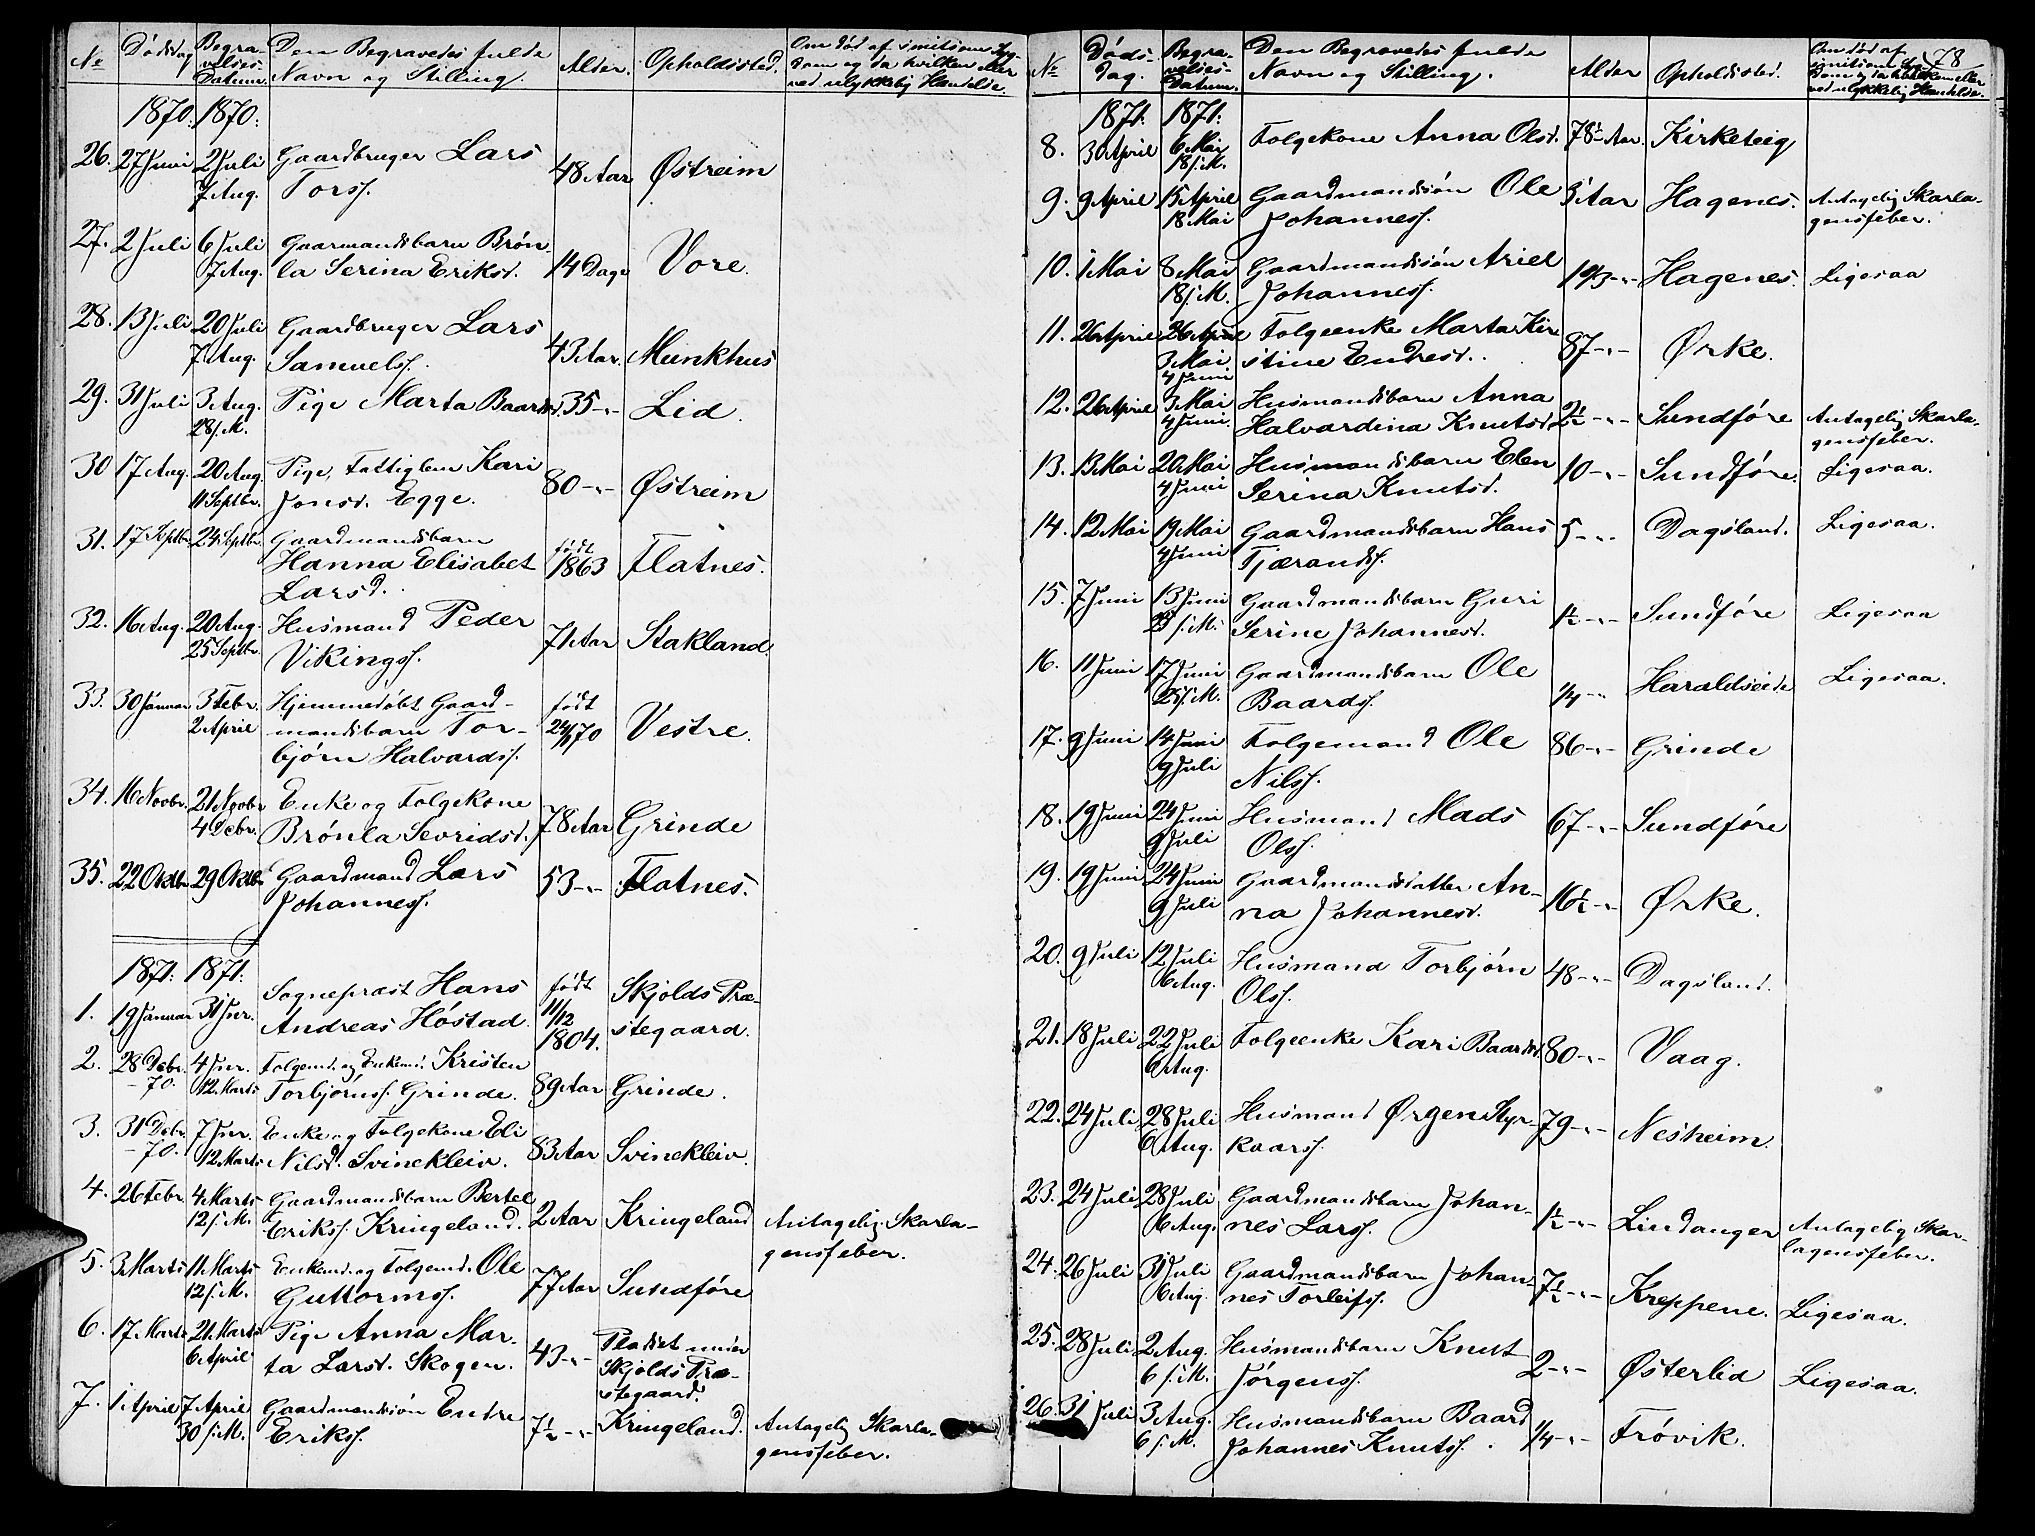 No Dødsdag Begravelses-Datum. Den Begravedes fulde Navn og Stilling. Alder. Opholdssted. Om død af smitsom Sygdom og da hvilken eller ved ulykkelig Hændelse.
1870. 1870.
26. 27 Juni 2 Juli Gaardbruger Lars 48 Aar Østreim
7 Aug. Torss.
27. 2 Juli 6 Juli Gaarmandsbarn Brøn
7 Aug. la Serina Eriksd. 14 Dage Vore.
28. 13 Juli 20 Juli Gaardbruger Lars
7 Aug. Samuelss. 43 Aar. Munkhus
29. 31 Juli 3 Aug. Pige Marta Baardsd. 35 -"- Lid.
28 s. M.
30 17 Aug. 20 Aug. Pige, Fattiglem Kari
11 Septbr. Jonsd. Egge. 80 -"- Østreim
31. 17 Septbr. 24 Septbr. Gaardmandsbarn
Hanna Elisabet født 1863 Flatnes.
Larsd.
32. 16 Aug. 20 Aug. Husmand Peder
25 Septbr. Vikingss. 71 Aar Stakland.
33. 30 Januar 3 Febr. Hjemmedøbt Gaard-
2 April mandsbarn Tor- født 24/1 70 Vestre.
bjørn Halvardss.
34. 16 Novbr. 21 Novbr Enke og Folgekone
4 Debr. Brønla Sevridsd. 78 Aar Grinde
35. 22 Oktbr 29 Oktbr Gaardmand Lars 53 -"- Flatnes.
Johanness.
1871. 1871.
1. 19 Januar 31 Jnr. Sognepræst Hans født Skjolds Præ-
Andreas Høstad. 11/12 1804. stegaard.
2. 28 Debr. 4 Jnr. Folgemd. og Enkemd. Kristen
-70. 12 Marts Torbjørnss. Grinde. 89 Aar Grinde.
3. 31 Debr. 7 Jnr. Enke og Folgekone Eli
-70. 12 Marts Nilsd. Svinekleiv. 83 Aar Svinekleiv.
4. 26 Febr. 4 Marts Gaardmandsbarn Bertel
12 s. M. Erikss. Kringeland. 2 Aar Kringeland Antagelig Skarla-
gensfeber.
5. 3 Marts 11 Marts Enkemd. og Folgemd. Ole
12 s. M. Guttormss. 77 Aar Sundføre
6. 17 Marts 21 Marts Pige Anna Mar- Pladset under
6 April ta Larsd. Skogen. 43 -"- Skjolds Præ-
stegaard.
7. 1 April 7 April Gaardmandssøn Endre
30 s. M. Erikss. 7½ -"- Kringeland. Antagelig Skarla-
gensfeber.
78
No Døds-dag. Begravelses-Datum. Den Begravedes fulde Navn og Stilling. Alder Opholdssted. Om død af smitsom Sygdom og da hvilken eller ved ulykkelig Hændelse.
1871. 1871.
8. 30 April 6 Mai Folgekone Anna Olsd. 78½ Aar. Kirketeig
18 s. M.
9. 9 April 15 April Gaardmandssøn Ole 5 Aar Hagenes. Antagelig Skarla-
18 Mai Johanness. gensfeber.
10. 1 Mai 8 Mai Gaardmandssøn Ariel
18 s. M. Johanness. -"- Hagenes. Ligesaa
11. 26 April 26 April Folgeenke Marta Kir
3 Mai stine Endresd. 87 -"- Ørke.
4 Juni
12. 26 April 3 Mai Husmandsbarn Anna
4 Juni Halvardina Knutsd. 2½ -"- Sundføre Antagelig Skarla-
gensfeber.
13. 13 Mai 20 Mai Husmandsbarn Elen
4 Juni Serina Knutsd. 10 -"- Sundføre. Ligesaa.
14. 12 Mai 19 Mai Gaardmandsbarn Hans
4 Juni Tjærandss. 5 -"- Dagsland. Ligesaa.
15. 7 Juni 13 Juni Gaardmandsbarn Guri
25 s. M. Serine Johannesd. 1½ -"- Sundføre Ligesaa
16. 11 Juni 17 Juni Gaardmandsbarn Ole
25 s. M. Baardss. ¼ -"- Haraldseide Ligesaa.
17. 9 Juni 14 Juni Folgemand Ole 86 -"- Grinde
9 Juli Nilss.
18. 19 Juni 24 Juni Husmand Mads 67 -"- Sundføre
9 Juli Olss.
19. 19 Juni 24 Juni Gaardmandsdatter An-
9 Juli na Johannesd. 16½ -"- Ørke.
20. 9 Juli 12 Juli Husmand Torbjørn 48 -"- Dagsland.
6 Aug. Olss.
21. 18 Juli 22 Juli Folgeenke Kari Baardsd. 80 -"- Vaag.
6 Aug.
22. 24 Juli 28 Juli Husmand Ørgen Styr- 79 -"- Nesheim.
6 Aug. kaarss.
23. 24 Juli 28 Juli Gaardmandsbarn Johan-
6 Aug. nes Larss. 1½ -"- Lindanger Antagelig Skar-
lagensfeber.
24. 26 Juli 31 Juli Gaardmandsbarn Johan-
6 Aug. nes Torleifss. 7½ -"- Kreppene. Ligesaa.
25. 28 Juli 2 Aug. Husmandsbarn Knut
6 s. M. Jørgenss. 2 -"- Østerlid Ligesaa.
26. 31 Juli 3 Aug. Husmandsbarn Baard
6 s. M. Johannes Knutss. ¼ -"- Frøvik.